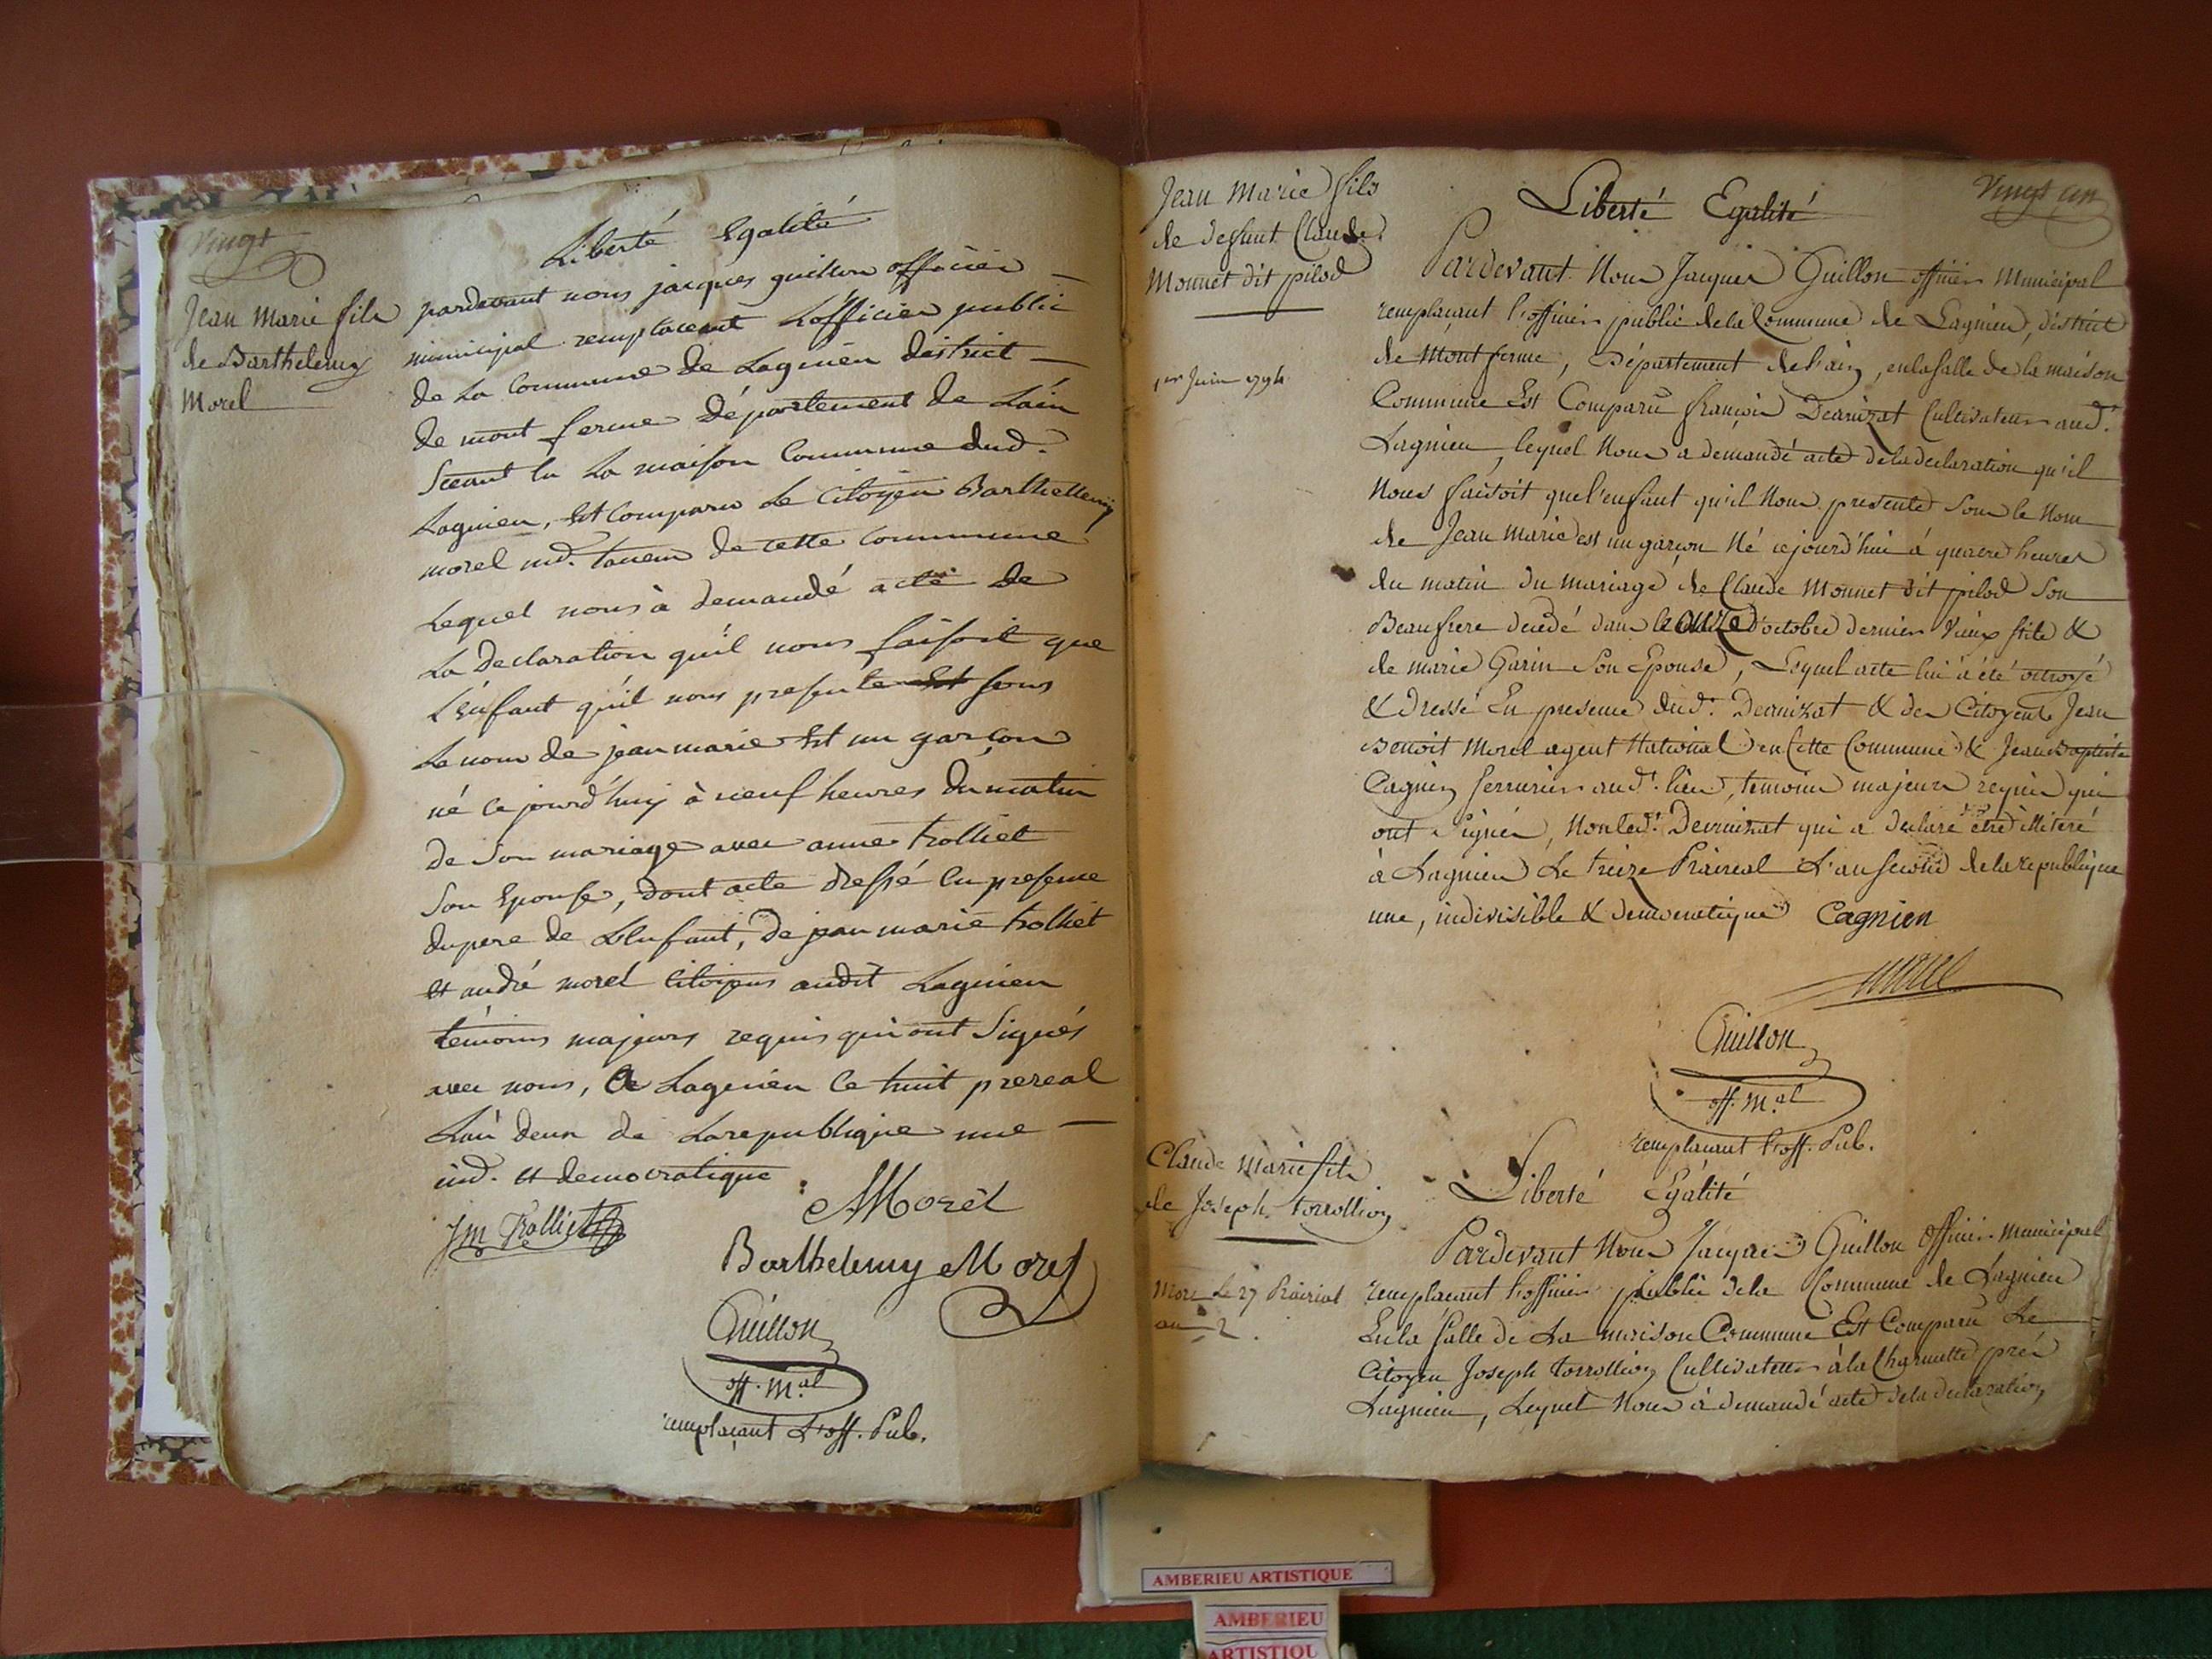 Vingt
Jean Marie fils
de Barthelemy
Morel
Liberté Egalité
pardevant nous jacques guillon officier
municipal remplaceant Lofficier public
de La Commune de Lagnieu district
de mont ferme Département de Lain
Sceant en La maison Commune dud.
Lagnieu, Est Comparu Le Citoyen Barthellemy
morel md. taneur de cette Commune
Lequel nous à demandé acte de
La Declaration qu'il nous faisoit que
L'enfant qu'il nous presente sous
Le nom de jean marie Est un garçon
né ce jourd'huy à neuf heures du matin
de Son mariage avec anne trolliet
Son Epouse, dont acte dressé En presence
du pere de L'enfant, de jean marie trolliet
et andré morel Citoyens audit Lagnieu
témoins majeurs requis qui ont Signés
avec nous, a Lagnieu Ce huit prereal
L'an deux de La republique une
ind. et democratique
AMorel
Jm Trolliet
Barthelemy Morel
Guillon
off. m.al
remplaçant L'off. Pub.
Vingt un
Jean Marie fils
de defunt Claude
Monnet dit pilod
1er Juin 1794
Liberté Egalité
Pardevant Nous Jacques Guillon officier Municipal
remplaçant l'officier public de la Commune de Lagnieu, district
de Mont ferme, Département de l'ain, en la salle de la maison
Commune Est Comparû françois Cultivateur aud.t
Lagnieu, lequel Nous a demandé acte de la declaration qu'il
Nous faisoit que l'enfant qu'il Nous presente sous le Nom
de Jean Marie est un garçon Né cejourd'hui à quatre heures
du matin du mariage de Claude Monnet dit pilod Son
Beaufrere décédé dans le onze d'octobre dernier Vieux stile &
de marie Garin Son Epouse, Lequel acte lui a été octroyé
& dressé En presence dud.t & des Citoyens Jean
Benoit Morel agent National en Cette Commune & Jean Baptiste
Cagnin serrurier aud.t lieu, témoins majeurs requis qui
ont signés, Non led.t qui a declaré être illiteré
à Lagnieu Le treize Prairéal L'an second de la republique
une, indivisible & democratique Cagnien
Morel
Guillon
off. m.al
remplaçant l'off. Pub.
Claude Marie fils
de Joseph Torrollion
Mort Le 27 Prairial
an 2
Liberté Egalité
Pardevant Nous Jacques Guillon Officier Municipal
remplaçant l'officier public de la Commune de Lagnieu
En la salle de La maison Commune Est Comparû Le
Citoyen Joseph Torrollion Cultivateur à la Charmette près
Lagnieu, Lequel Nous à demandé acte de la declaration
AMBERIEU ARTISTIQUE
AMBERIEU
ARTISTIQU